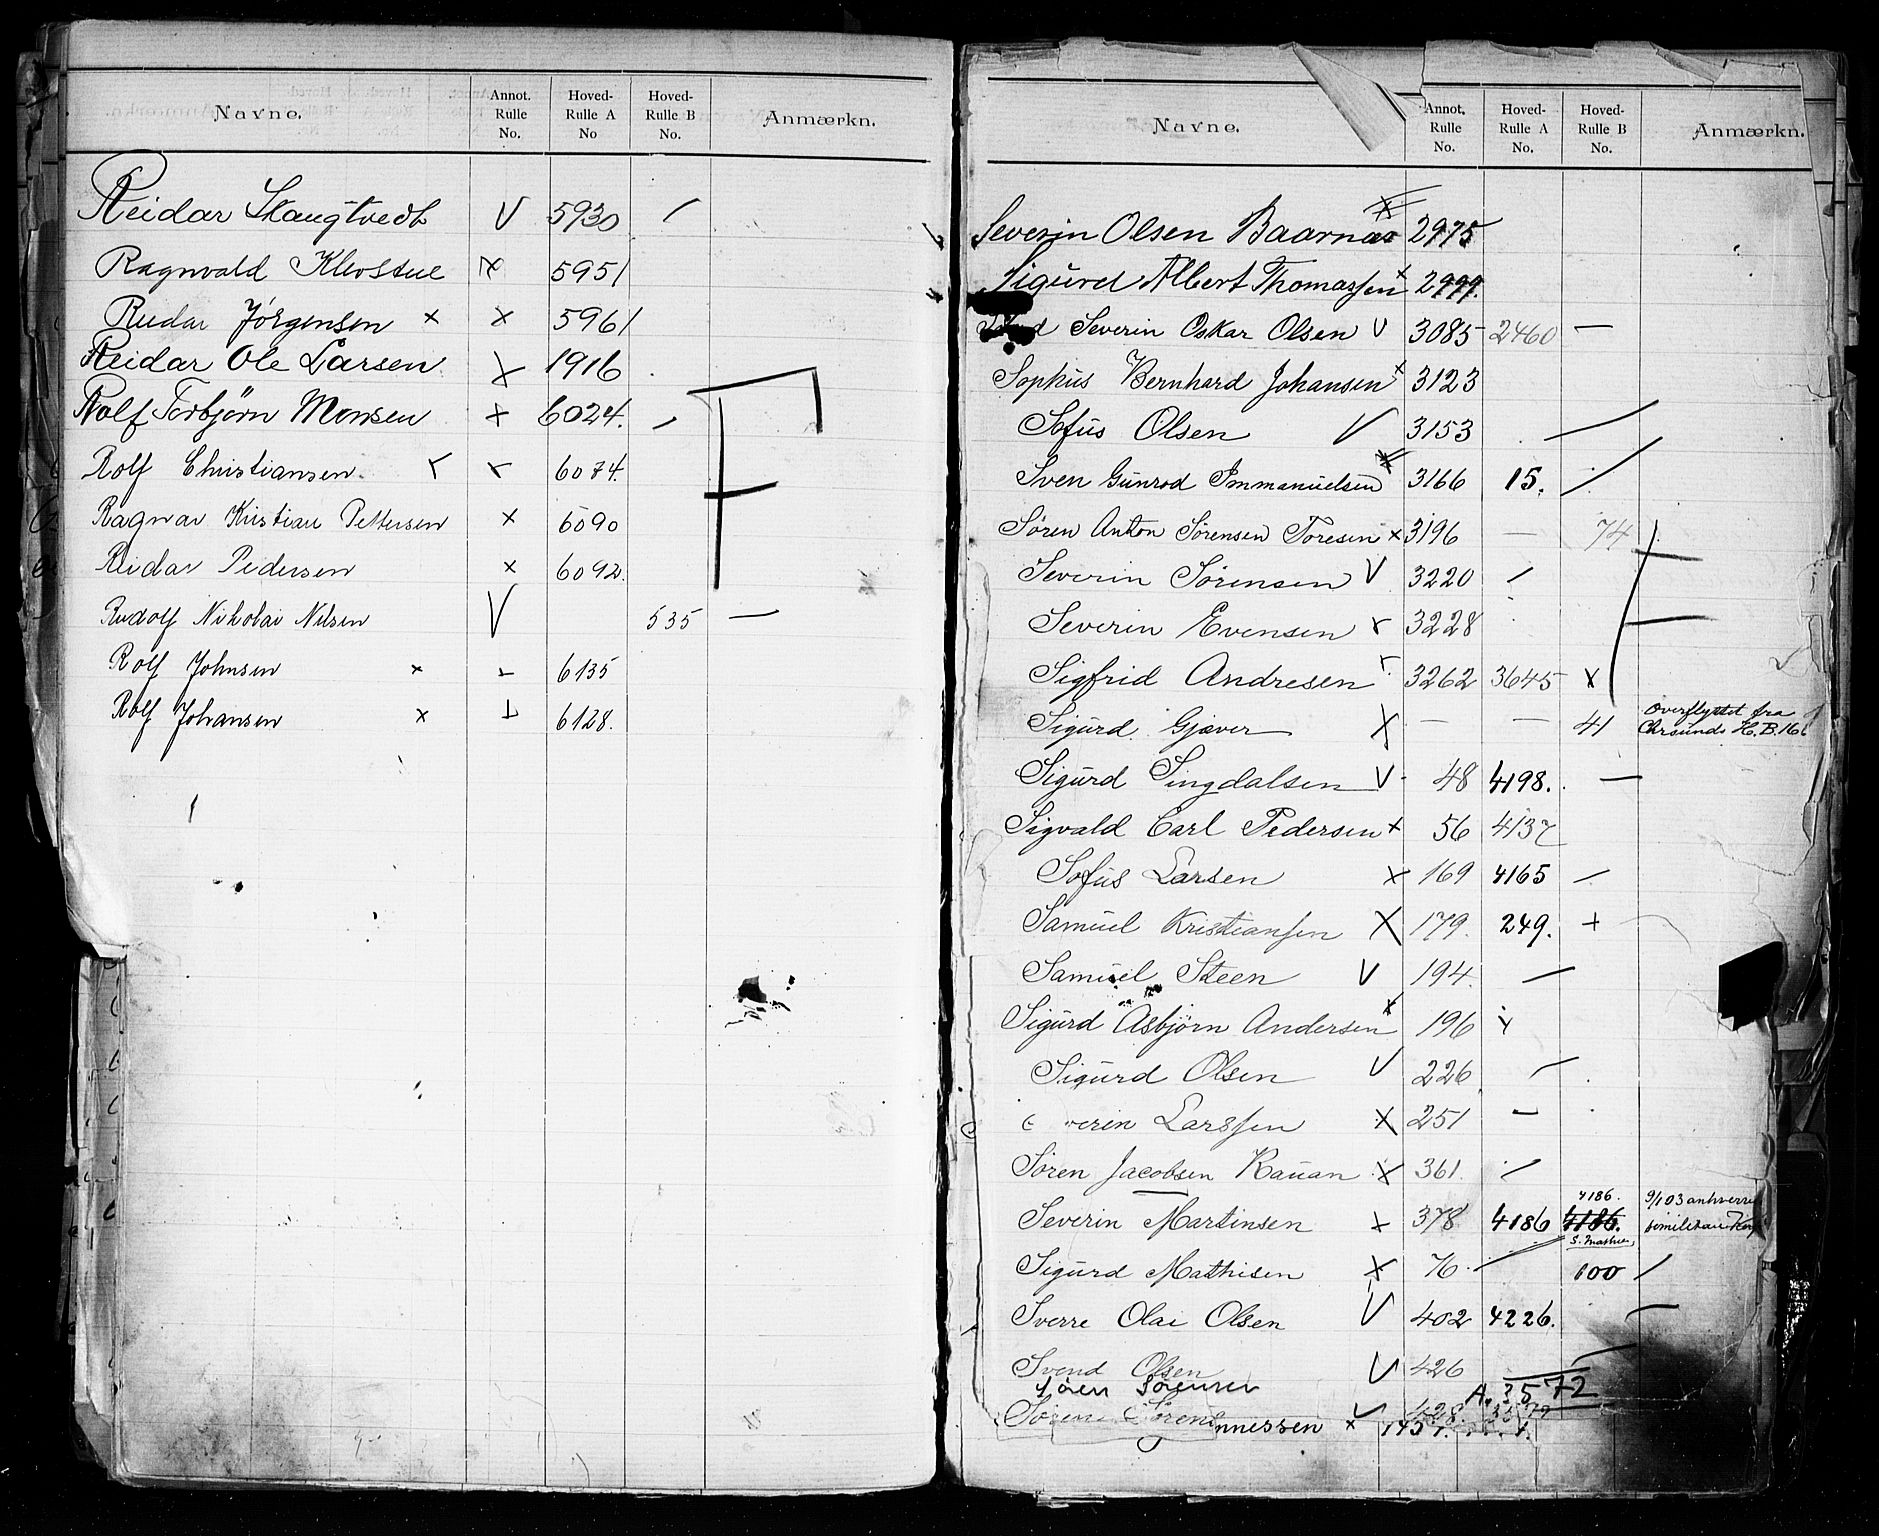 Navne. Annot. Rulle No. Hoved-Rulle A No Hoved-Rulle B No. Anmærkn.
Reidar Skaugtvedt V 5930 /
Ragnvald Klevstue x 5951
Reidar Jørgensen x x 5961
Reidar Ole Larsen x 1916
Rolf Torbjørn Monsen x 6024. /
Rolf Christiansen x x 6074.
Ragnar Kristian Pettersen x 6090
Reidar Pedersen x 6092.
Rudolf Nikolai Nilsen V 535 —
Rolf Johnsen x 6135
Rolf Johansen x 6128.
Navne. Annot. Rulle No. Hoved-Rulle A No. Hoved-Rulle B No. Anmærkn.
Severin Olsen Baarnæs x 2975
Sigurd Albert Thomassen x 2999.
Severin Oskar Olsen V 3085 2460 —
Sophus Bernhard Johansen x 3123
Sofus Olsen V 3153 —
Sven Gunrod Immanuelsen x 3166 15. /
Søren Anton Sørensen Toresen x 3196 — 74
Severin Sørensen V 3220 /
Severin Evensen x 3228
Sigfrid Andresen x 3262 3645 x
Sigurd Gjæver x — — 41 Overflyttet fra Chrsunds H.B. 16
Sigurd Singdalsen V 48 4198. —
Sigvald Carl Pedersen x 56 4137
Sofus Larsen x 169 4165 —
Samuel Kristiansen x 179. 249. +
Samuel Steen V 194. —
Sigurd Asbjørn Andersen x 196 x
Sigurd Olsen V 226 —
verin Larssen x 251 —
Søren Jacobsen Rauan x 361. /
4186. 9/1 03
Severin Martinsen x 378 4186 4186.
S. Mathis.
Sigurd Mathisen x 76. / 100 /
Sverre Olai Olsen V 402 4226. —
Svend Olsen V 426 —
Søren Sørensen A. 3572
Søren Søren V 428. 3579
nnessen x